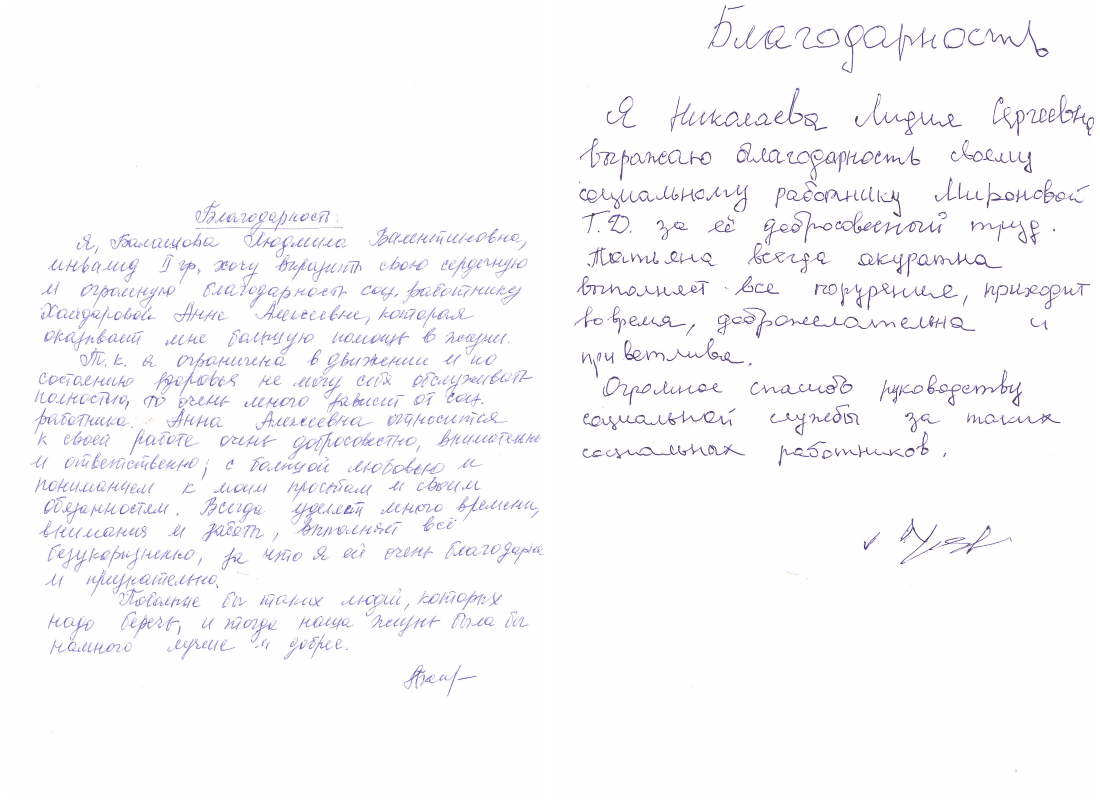 Благодарность.
Я, Балашова Людмила Валентиновна,
инвалид II гр, хочу выразить свою сердечную
и огромную благодарность соц. работнику
Хайдаровой Анне Алексеевне, которая
оказывает мне большую помощь в жизни.
Т.к. я ограничена в движении и по
состоянию здоровья не могу себя обслуживать
полностью, то очень много зависит от соц.
работника. Анна Алексеевна относится
к своей работе очень добросовестно, внимательно
и ответственно; с большой любовью и
пониманием к моим просьбам и своим
обязанностям. Всегда уделяет много времени,
внимания и заботы, выполняет всё
безукоризненно, за что я ей очень благодарна
и признательна.
Побольше бы таких людей, которых
надо беречь, и тогда наша жизнь была бы
намного лучше и добрее.
Благодарность
Я Николаева Лидия Сергеевна
выражаю благодарность своему
социальному работнику Мироновой
Т.Д. за её добросовесный труд.
Татьяна всегда акуратна
выполняет все порурение, приходит
вовремя, доброжелательна и
приветлива.
Огромное спасибо руководству
социальной службы за таких
социальных работников.